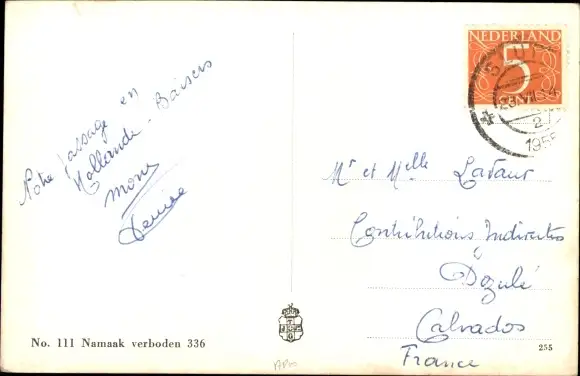 Notre passage en
Hollande. Baisers
Mone
Denise
NEDERLAND
5
23.VII.
1955
Mr et Melle Lavaur
Contributions Indirectes
à
Dozulé
Calvados
France
No. 111 Namaak verboden 336
255